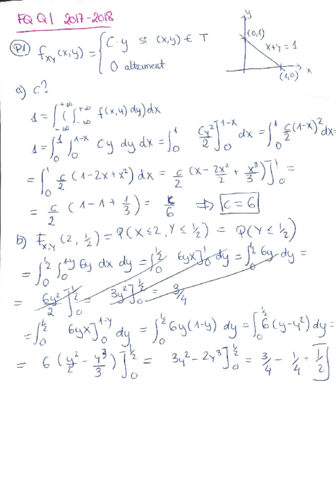 FQ Q1 2017-2018
P1 f_XY(x,y) = { C·y si (x,y) ∈ T
0 altrament
y
(0,1)
x+y=1
(1,0)
x
a) c?
1 = ∫_{-∞}^{+∞} ( ∫_{-∞}^{+∞} f(x,y) dy) dx
1 = ∫_0^1 ∫_0^{1-x} Cy dy dx = ∫_0^1 Cy²/2 ]_0^{1-x} dx = ∫_0^1 c/2 (1-x)² dx =
= ∫_0^1 c/2 (1-2x+x²) dx = c/2 (x - 2x²/2 + x³/3) ]_0^1 =
= c/2 (1-1+1/3) = c/6 ⇒ c=6
b) F_{X,Y}(2, 1/2) = P(X≤2, Y≤1/2) = P(Y≤1/2)
= ∫_0^{1/2} ∫_0^{1-y} 6y dx dy = ∫_0^{1/2} 6yx ]_0^1 dy = ∫_0^{1/2} 6y dy =
= 6y²/2 ]_0^{1/2} = 3y² ]_0^{1/2} = 3/4
= ∫_0^{1/2} 6yx ]_0^{1-y} dy = ∫_0^{1/2} 6y(1-y) dy = ∫_0^{1/2} 6(y-y²) dy =
= 6 (y²/2 - y³/3) ]_0^{1/2} = 3y² - 2y³ ]_0^{1/2} = 3/4 - 1/4 = 1/2